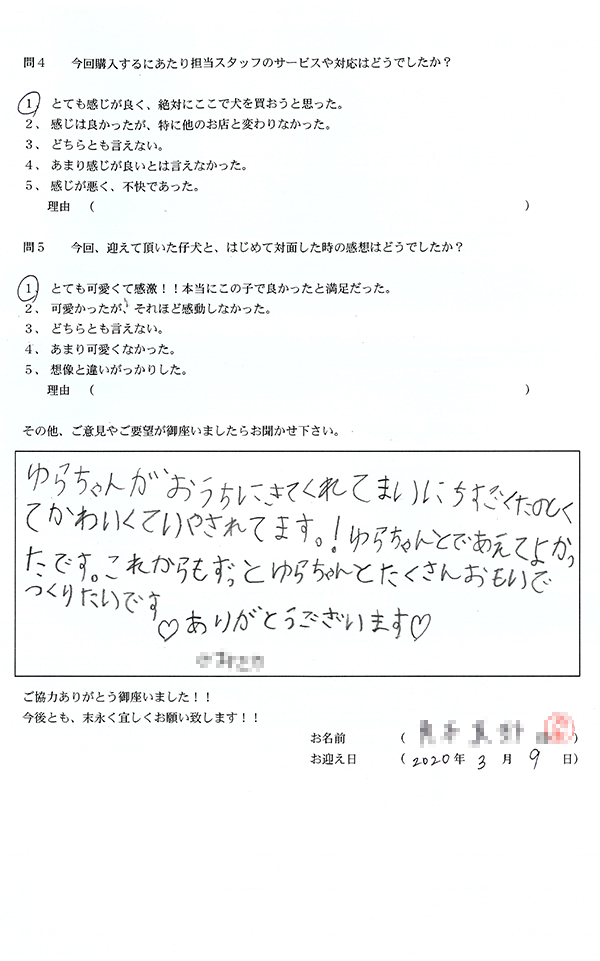 問4 今回購入するにあたり担当スタッフのサービスや対応はどうでしたか？
1、とても感じが良く、絶対にここで犬を買おうと思った。
2、感じは良かったが、特に他のお店と変わりなかった。
3、どちらとも言えない。
4、あまり感じが良いとは言えなかった。
5、感じが悪く、不快であった。
理由 （ ）
問5 今回、迎えて頂いた仔犬と、はじめて対面した時の感想はどうでしたか？
1、とても可愛くて感激！！本当にこの子で良かったと満足だった。
2、可愛かったが、それほど感動しなかった。
3、どちらとも言えない。
4、あまり可愛くなかった。
5、想像と違いがっかりした。
理由 （ ）
その他、ご意見やご要望が御座いましたらお聞かせ下さい。
ゆらちゃんがおうちにきてくれてまいにちすごくたのしく
てかわいくていやされてます。！ゆらちゃんとであえてよかっ
たです。これからもずっとゆらちゃんとたくさんおもいで
つくりたいです
♡ありがとうございます♡
ご協力ありがとう御座いました！！
今後とも、末永く宜しくお願い致します！！
お名前 （ ）
お迎え日 （2020年 3月 9日）